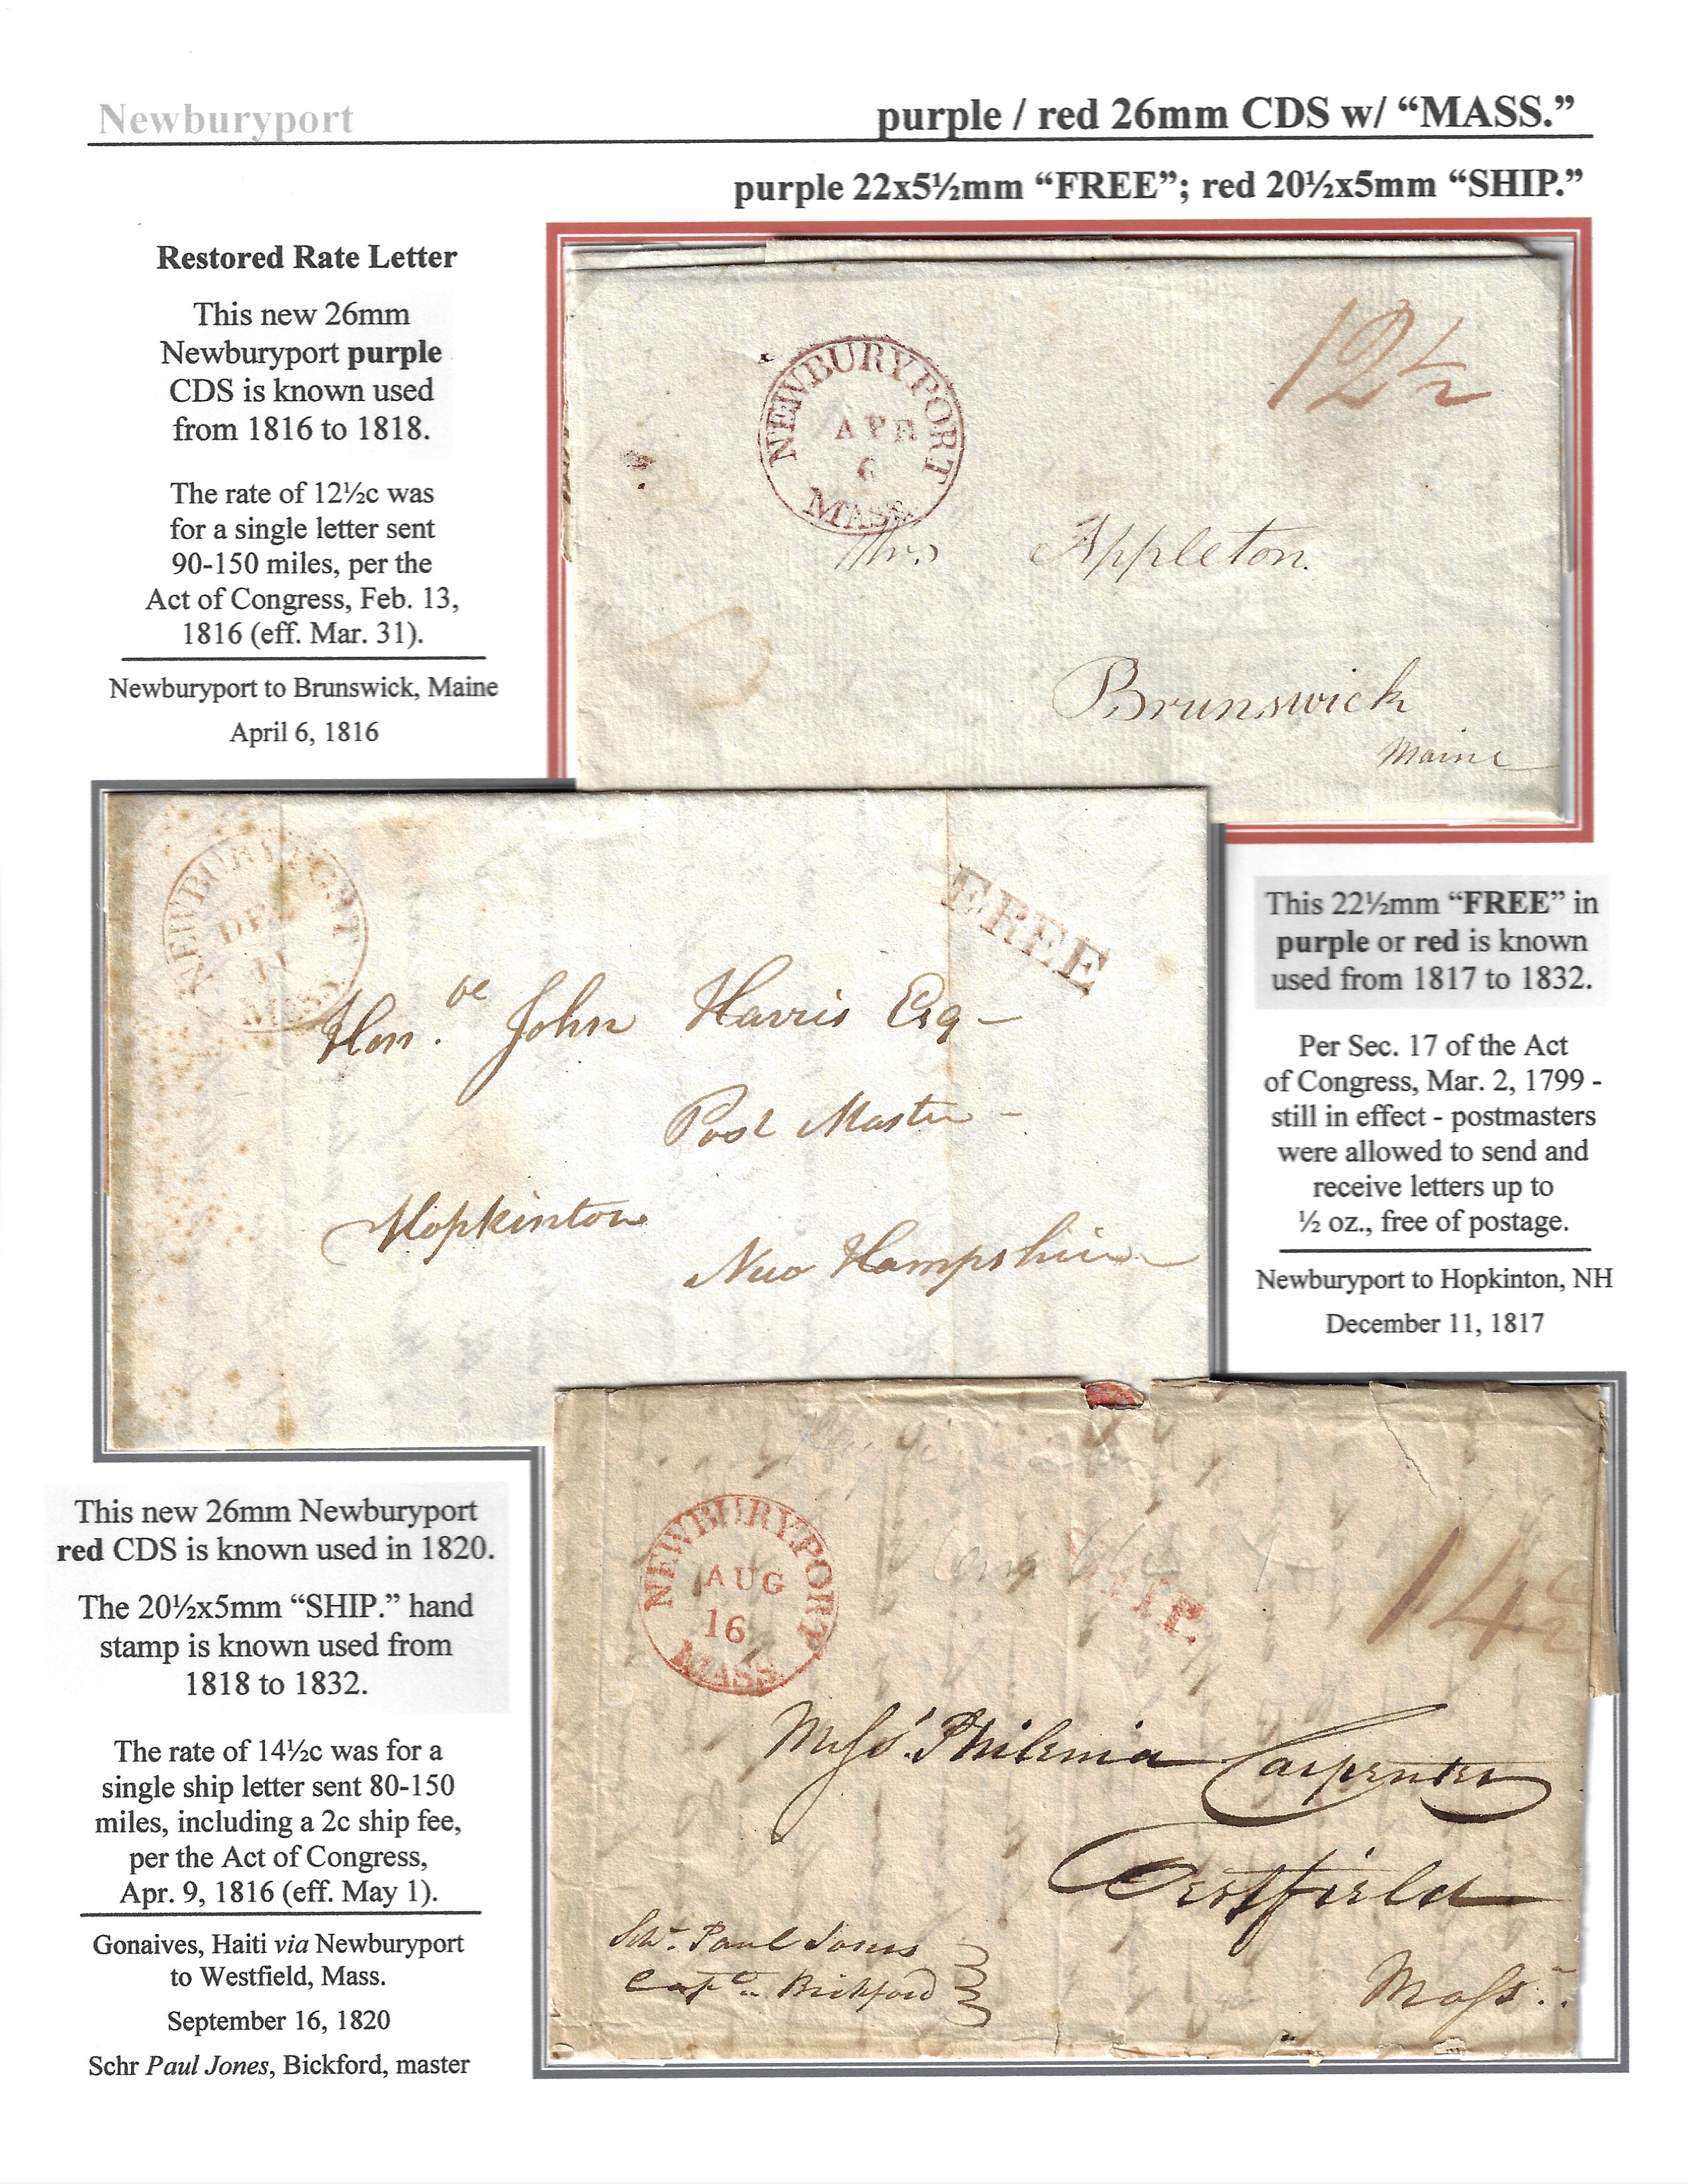 Newburyport
purple / red 26mm CDS w/ “MASS.”
purple 22x5½mm “FREE”; red 20½x5mm “SHIP.”
Restored Rate Letter
This new 26mm
Newburyport purple
CDS is known used
from 1816 to 1818.
The rate of 12½c was
for a single letter sent
90-150 miles, per the
Act of Congress, Feb. 13,
1816 (eff. Mar. 31).
Newburyport to Brunswick, Maine
April 6, 1816
NEWBURYPORT
APR
6
MASS.
12½
Mrs Appleton.
Brunswick
Maine
NEWBURYPORT
DEC
11
MASS.
FREE
Hon.ble John Harris Esq –
Post Master –
Hopkinton
New Hampshire
This 22½mm “FREE” in
purple or red is known
used from 1817 to 1832.
Per Sec. 17 of the Act
of Congress, Mar. 2, 1799 -
still in effect - postmasters
were allowed to send and
receive letters up to
½ oz., free of postage.
Newburyport to Hopkinton, NH
December 11, 1817
This new 26mm Newburyport
red CDS is known used in 1820.
The 20½x5mm “SHIP.” hand
stamp is known used from
1818 to 1832.
The rate of 14½c was for a
single ship letter sent 80-150
miles, including a 2c ship fee,
per the Act of Congress,
Apr. 9, 1816 (eff. May 1).
Gonaives, Haiti via Newburyport
to Westfield, Mass.
September 16, 1820
Schr Paul Jones, Bickford, master
NEWBURYPORT
AUG
16
MASS.
SHIP.
14½
Miss Philenia Carpenter
Westfield
Mass.
Schr. Paul Jones
Captn. Bickford